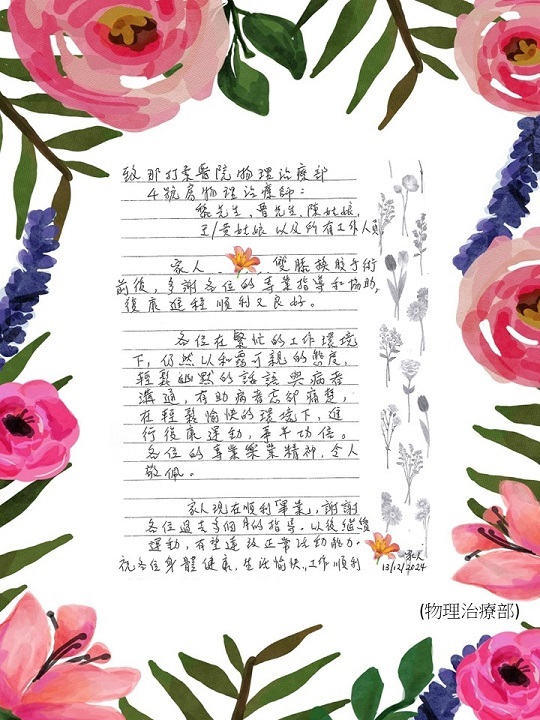 致那打素醫院物理治療部
4號房物理治療師：
黎先生，曹先生，陳姑娘，
王/黃姑娘 以及所有工作人員
家人 雙膝換骹手術
前後，多謝各位的專業指導和協助，
復康進程順利又良好。
各位在繁忙的工作環境
下，仍然以和靄可親的態度，
輕鬆幽默的話語與病者
溝通，有助病者忘卻痛楚，
在輕鬆愉快的環境下，進
行復康運動，事半功倍。
各位的專業樂業精神，令人
敬佩。
家人現在順利「畢業」，謝謝
各位過去多個月的指導。以後繼續
運動，有望達致正常活動能力。
祝各位身體健康，生活愉快，工作順利
家人
13/12/2024
(物理治療部)